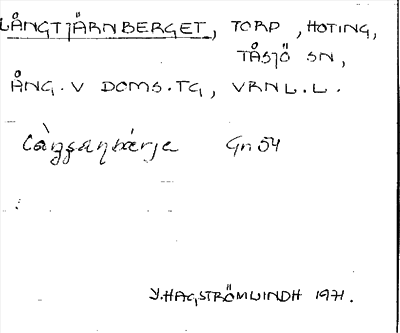 LÅNGTJÄRNBERGET, TORP, HOTING,
TÅSJÖ SN,
ÅNG. V DOMS. TG, VRNL.L.
Gn 54
Y. HAGSTRÖMLINDH 1971.